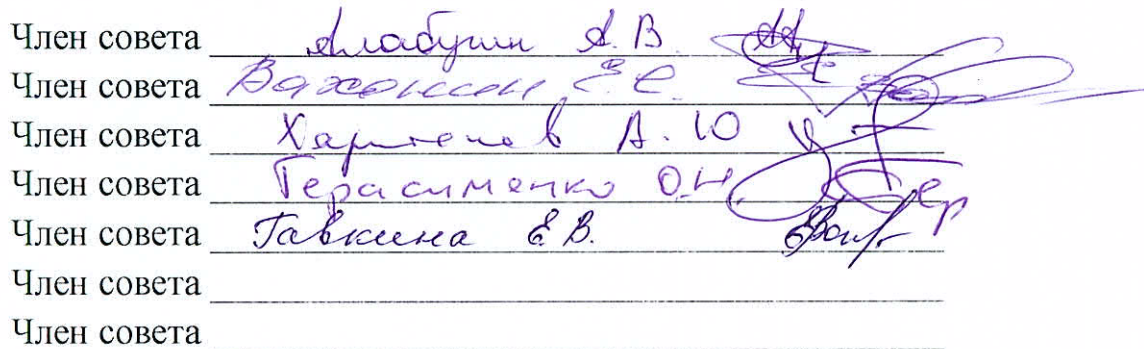 Член совета Алабушин А.В.
Член совета Вахонин Е.С.
Член совета А.Ю
Член совета Герасименко О.Н.
Член совета Гавкина Е.В.
Член совета
Член совета